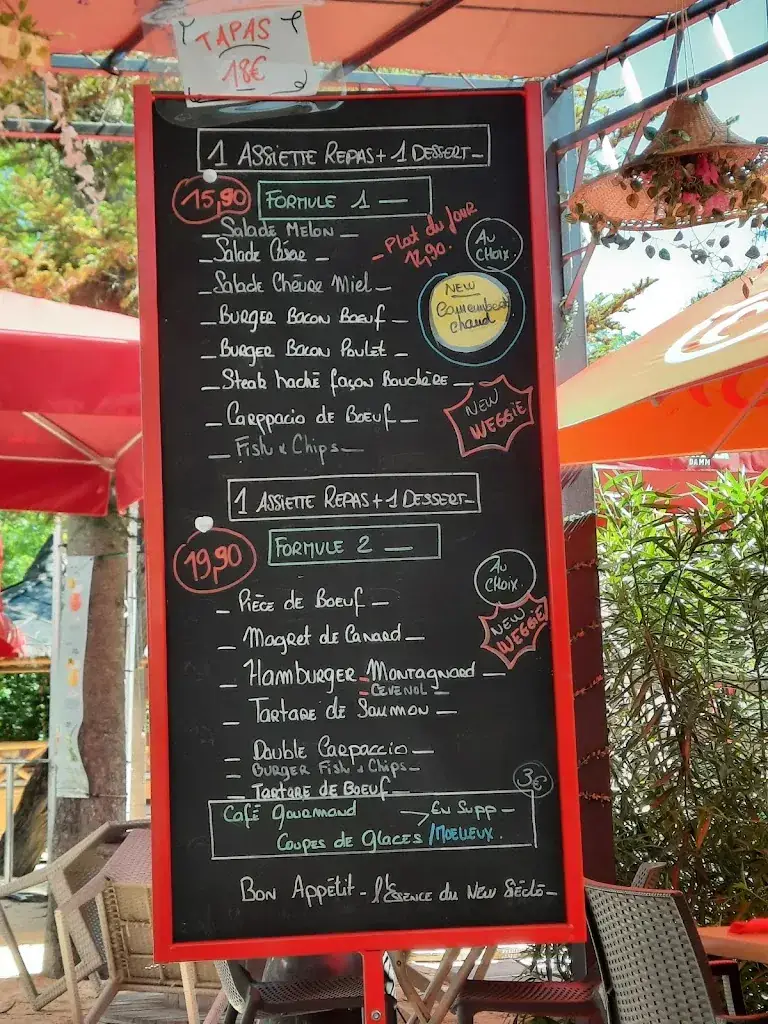 TAPAS
18€
1 ASSIETTE REPAS + 1 DESSERT
15,90
FORMULE 1
Salade MELON
Plat du jour
12,90.
Salade César
AU CHOIX
Salade Chèvre Miel
NEW
Camembert
chaud
BURGER BACON BOEUF
BURGER BACON POULET
Steak haché façon Bouchère
NEW
WEGGIE
CARPPACIO DE BOEUF
FISH & CHIPS
1 ASSIETTE REPAS + 1 DESSERT
19,90
FORMULE 2
AU
CHOIX.
PIÈCE DE BOEUF
NEW
WEGGIE
Magret de Canard
HAMBURGER MONTAGNARD
CEVENOL
TARTARE DE SAUMON
DOUBLE CARPACCIO
BURGER FISH & CHIPS
TARTARE DE BOEUF
3€
CAFÉ GOURMAND → EN SUPP
COUPES DE GLACES / MOELLEUX.
BON APPÉTIT - l'ESSENCE DU NEW
DAMM